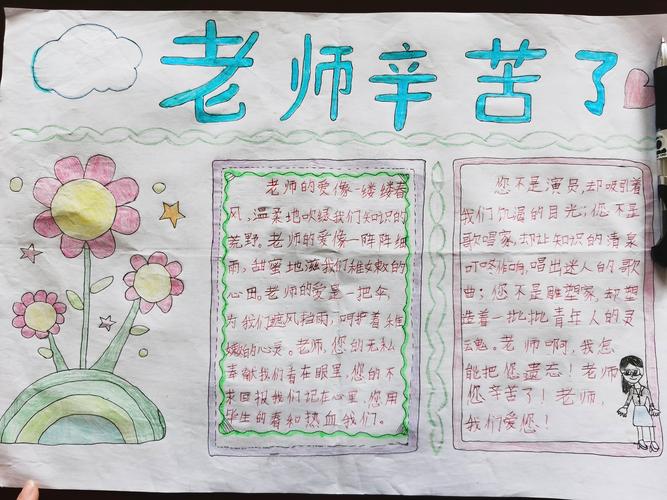 老师辛苦了
老师的爱像一缕缕春
风，温柔地吹绿我们知识的
荒野。老师的爱像一阵阵细
雨，甜蜜地滋我们稚嫩的
心田。老师的爱是一把伞，
为我们遮风挡雨，呵护着稚
嫩的心灵。老师，您的无私
奉献我们看在眼里，您的不
求回报我们记在心里，您用
毕生的春和热血我们。
您不是演员，却吸引着
我们饥渴的目光；您不是
歌唱家，却让知识的清泉
叮咚作响，唱出迷人的歌
曲；您不是雕塑家，却塑
造着一批批青年人的灵
魂。老师啊，我怎
能把您遗忘！老师
您辛苦了！老师，
我们爱您！